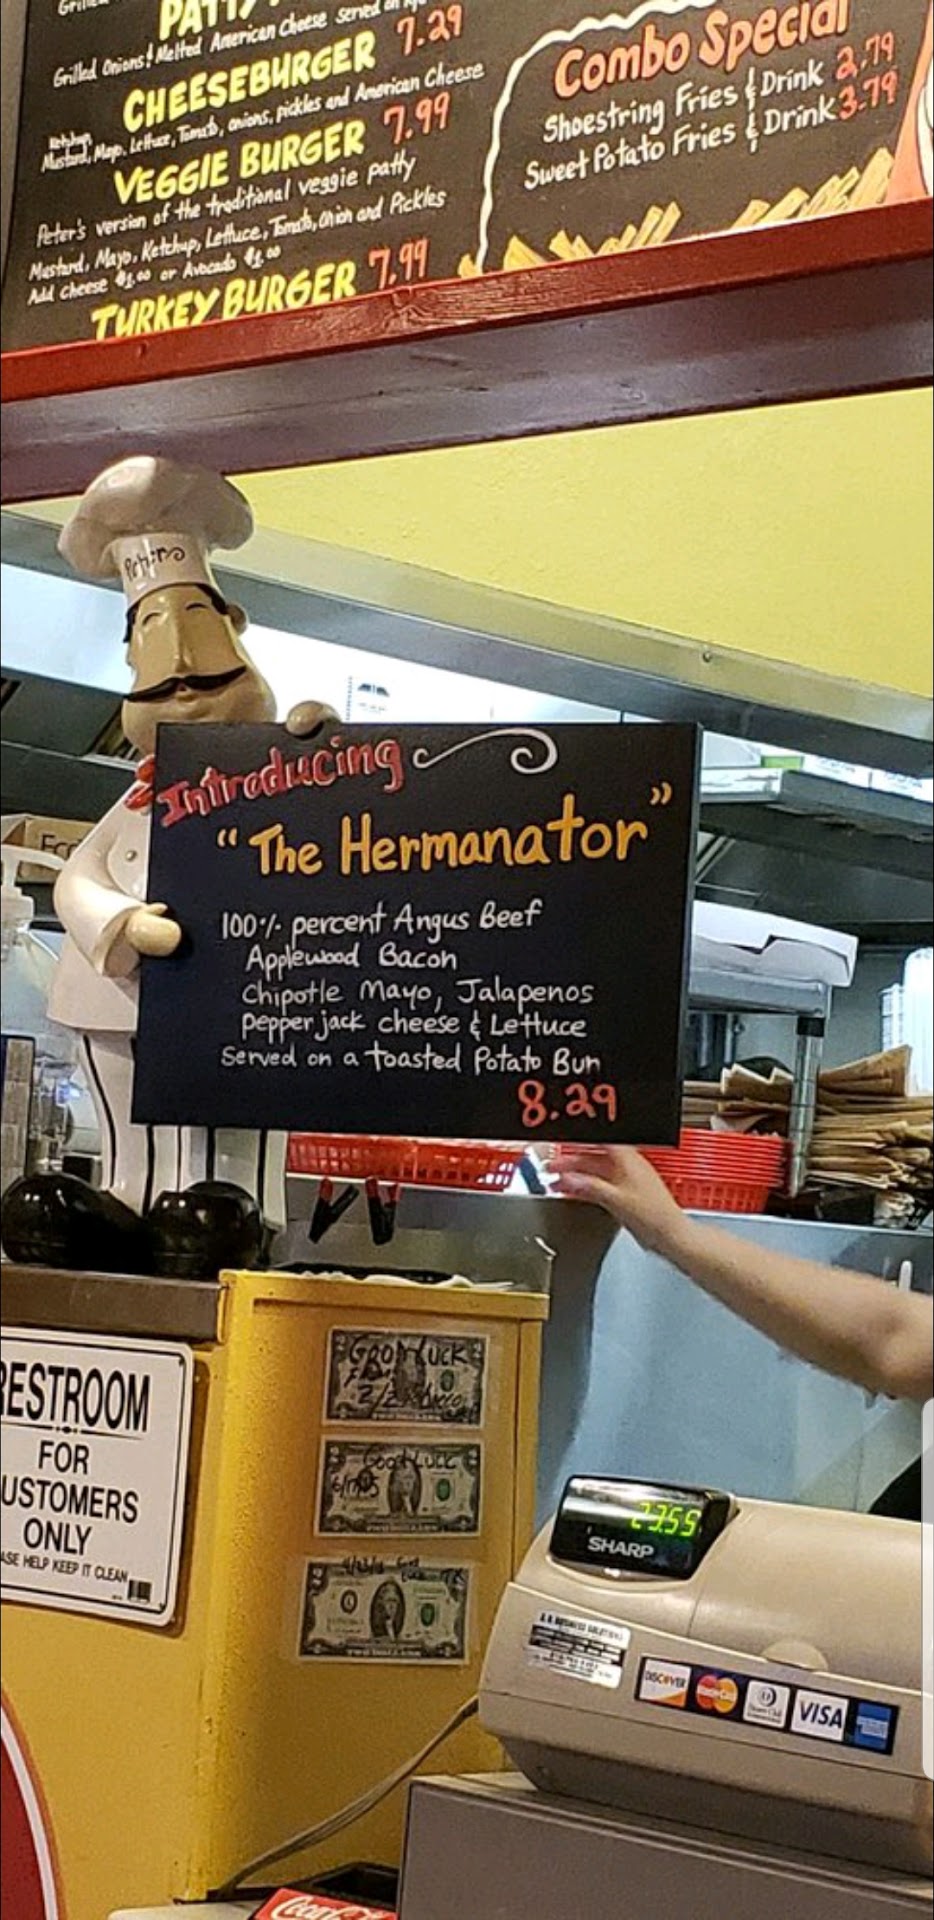 PATTY
Grilled Onions & Melted American Cheese served on
CHEESEBURGER 7.29
Ketchup,
Mustard, Mayo, Lettuce, Tomato, onions, pickles and American Cheese
VEGGIE BURGER 7.99
Peter's version of the traditional veggie patty
Mustard, Mayo, Ketchup, Lettuce, Tomato, Onion and Pickles
Add cheese $1.00 or Avocado $1.00
TURKEY BURGER 7.99
Combo Special
Shoestring Fries & Drink 2.79
Sweet Potato Fries & Drink 3.79
Peters
Introducing
"The Hermanator"
100% percent Angus Beef
Applewood Bacon
Chipotle Mayo, Jalapenos
Pepper jack cheese & Lettuce
Served on a toasted Potato Bun
8.29
RESTROOM
FOR
USTOMERS
ONLY
ASE HELP KEEP IT CLEAN
Good Luck
Good Luck
TWO DOLLARS
23.55
SHARP
BUSINESS SOLUTIONS
DISCOVER
MasterCard
VISA
Coca-Cola